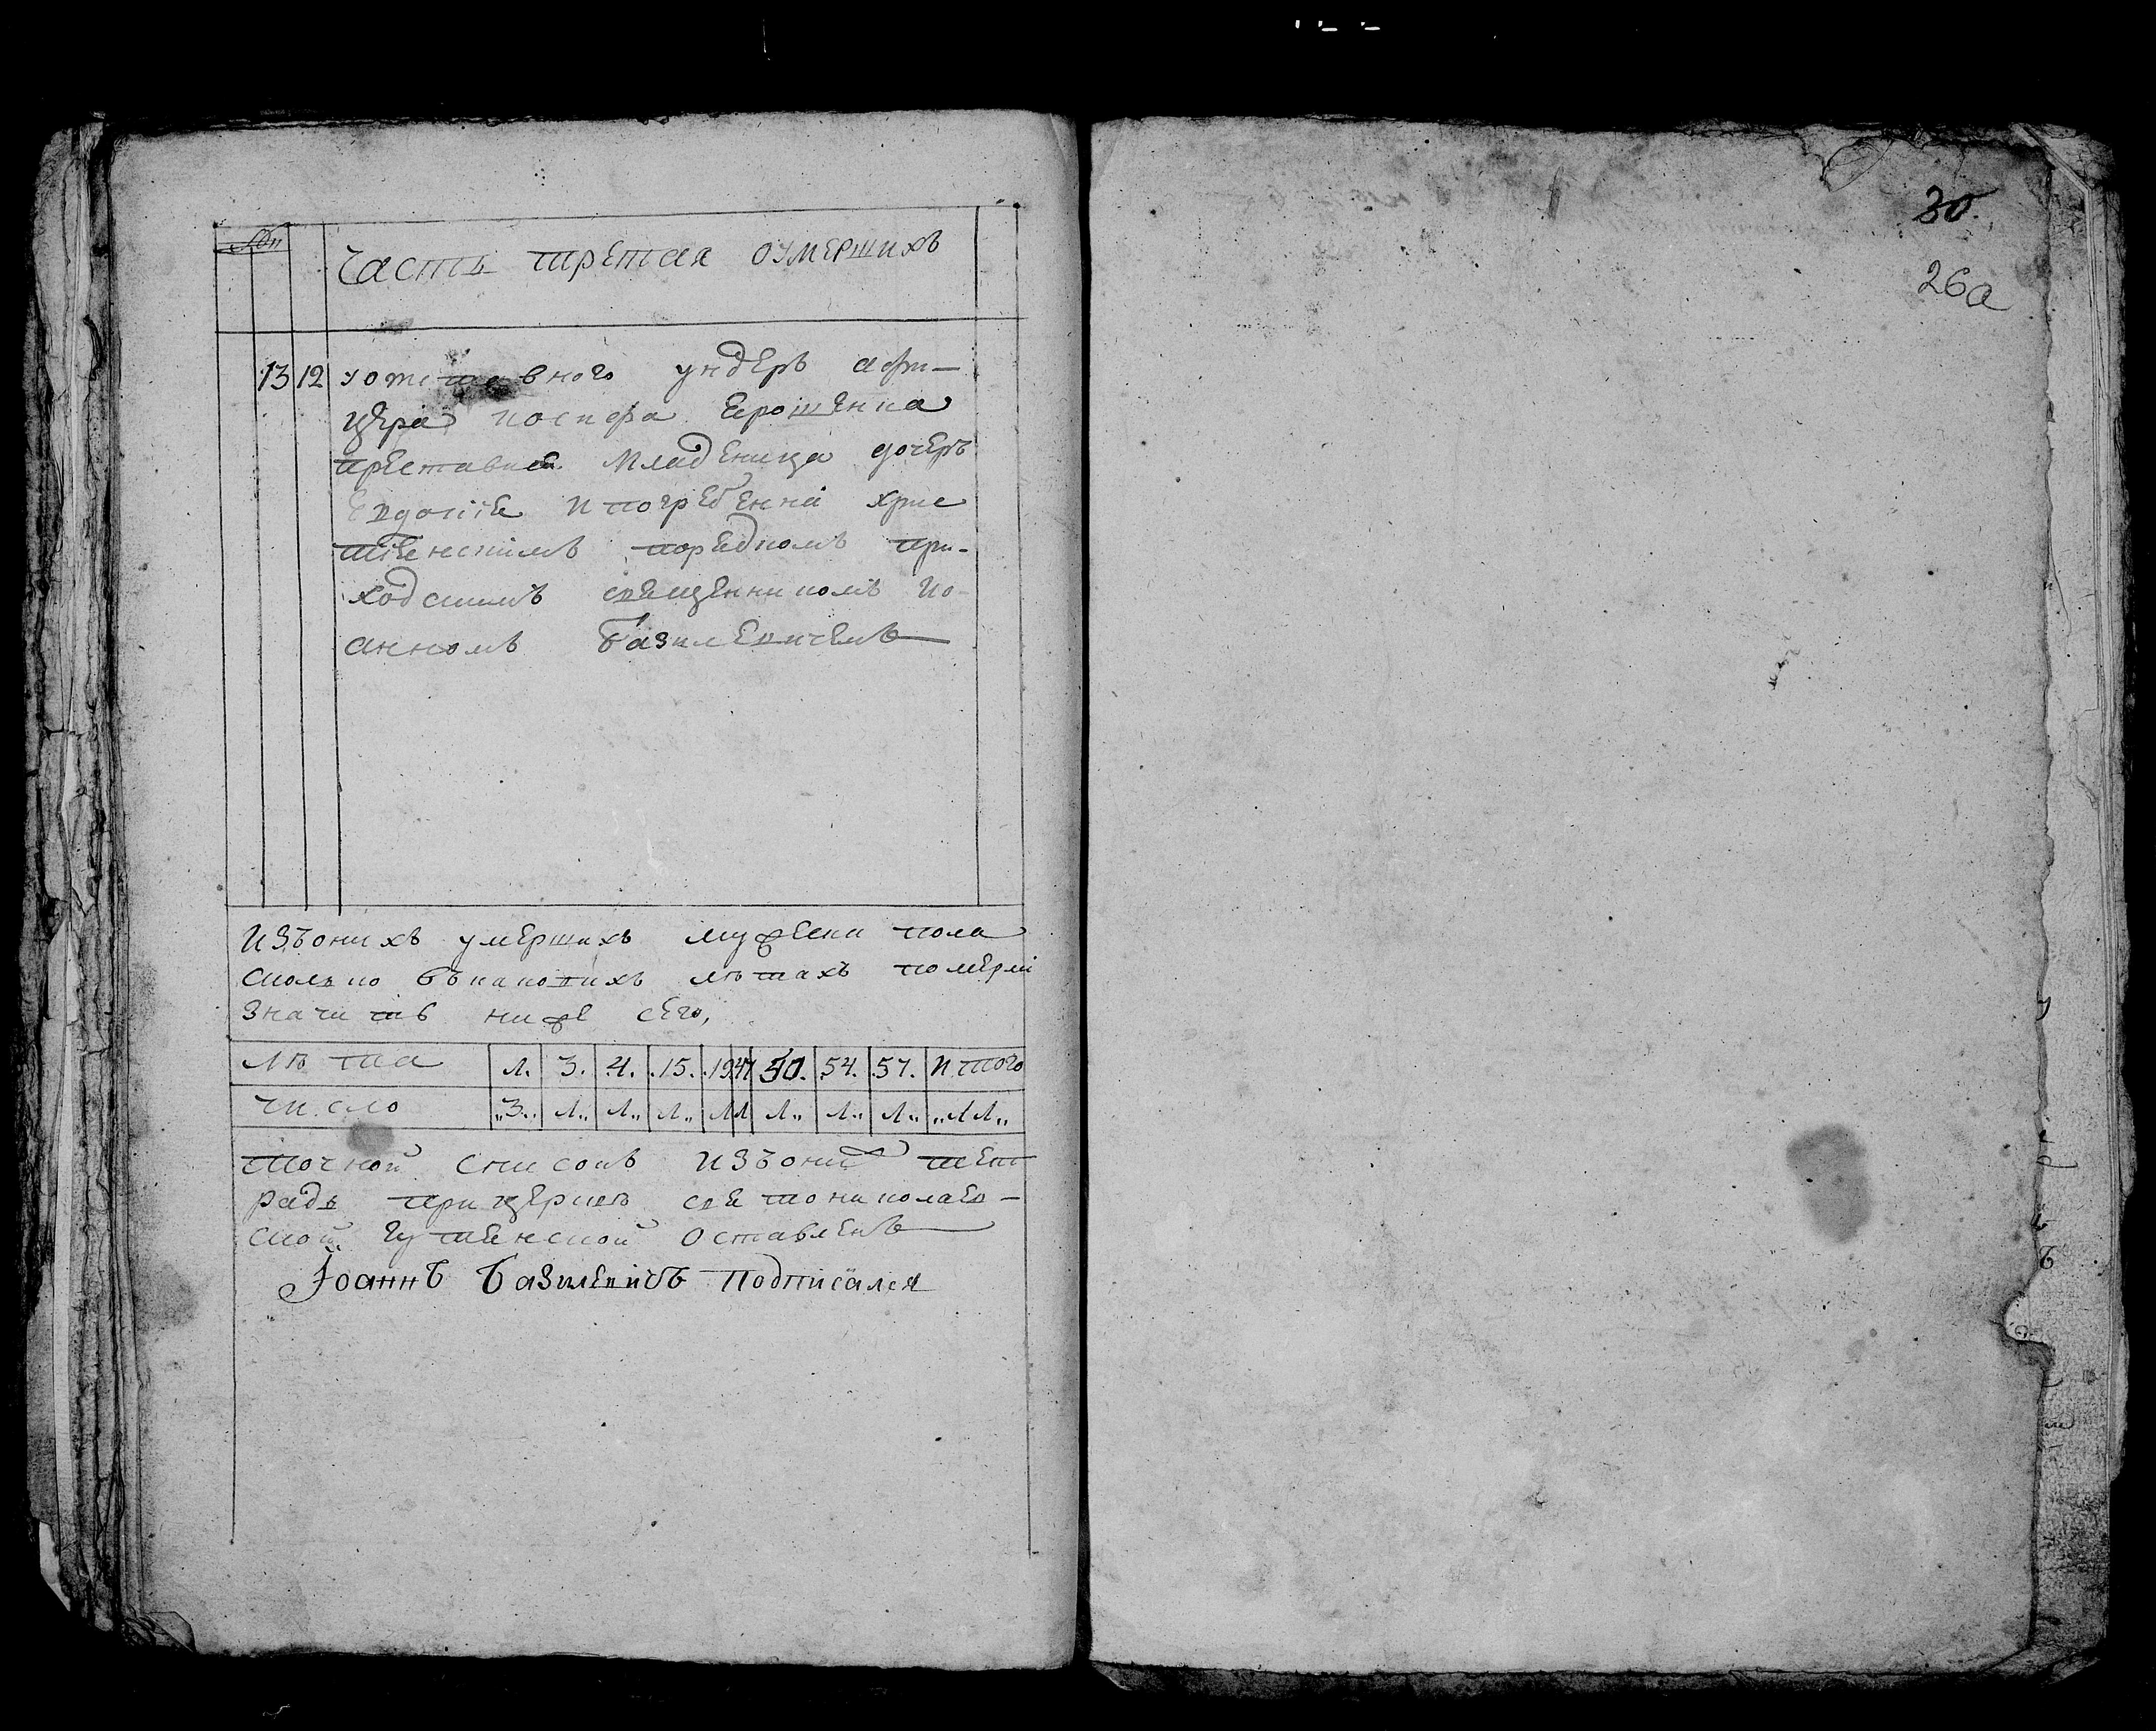 Часть третая оумершихъ
13 12 у отставного ундеръ афи-
цера иосифа Ерошенка
преставися младеница дочеръ
Евдокіе и погребенна хрис
тіенскимъ поредкомъ при-
ходскимъ свещенникомъ Ио-
анномъ Базилевичемъ
Изъ оныхъ умершихъ мужеска пола
сколько въ каковихъ лѣтахъ померли
значитъ ниже сего,
лѣта 1. 3. 4. 15. 19 47 50. 54. 57. итого
число 3 1 1 1 1 1 1 1 1 11
Точной списокъ изъ оной тет
радѣ при церквѣ светониколаев-
ской гутленской оставленъ
Іоаннъ Базилевичъ подписался
30.
26а